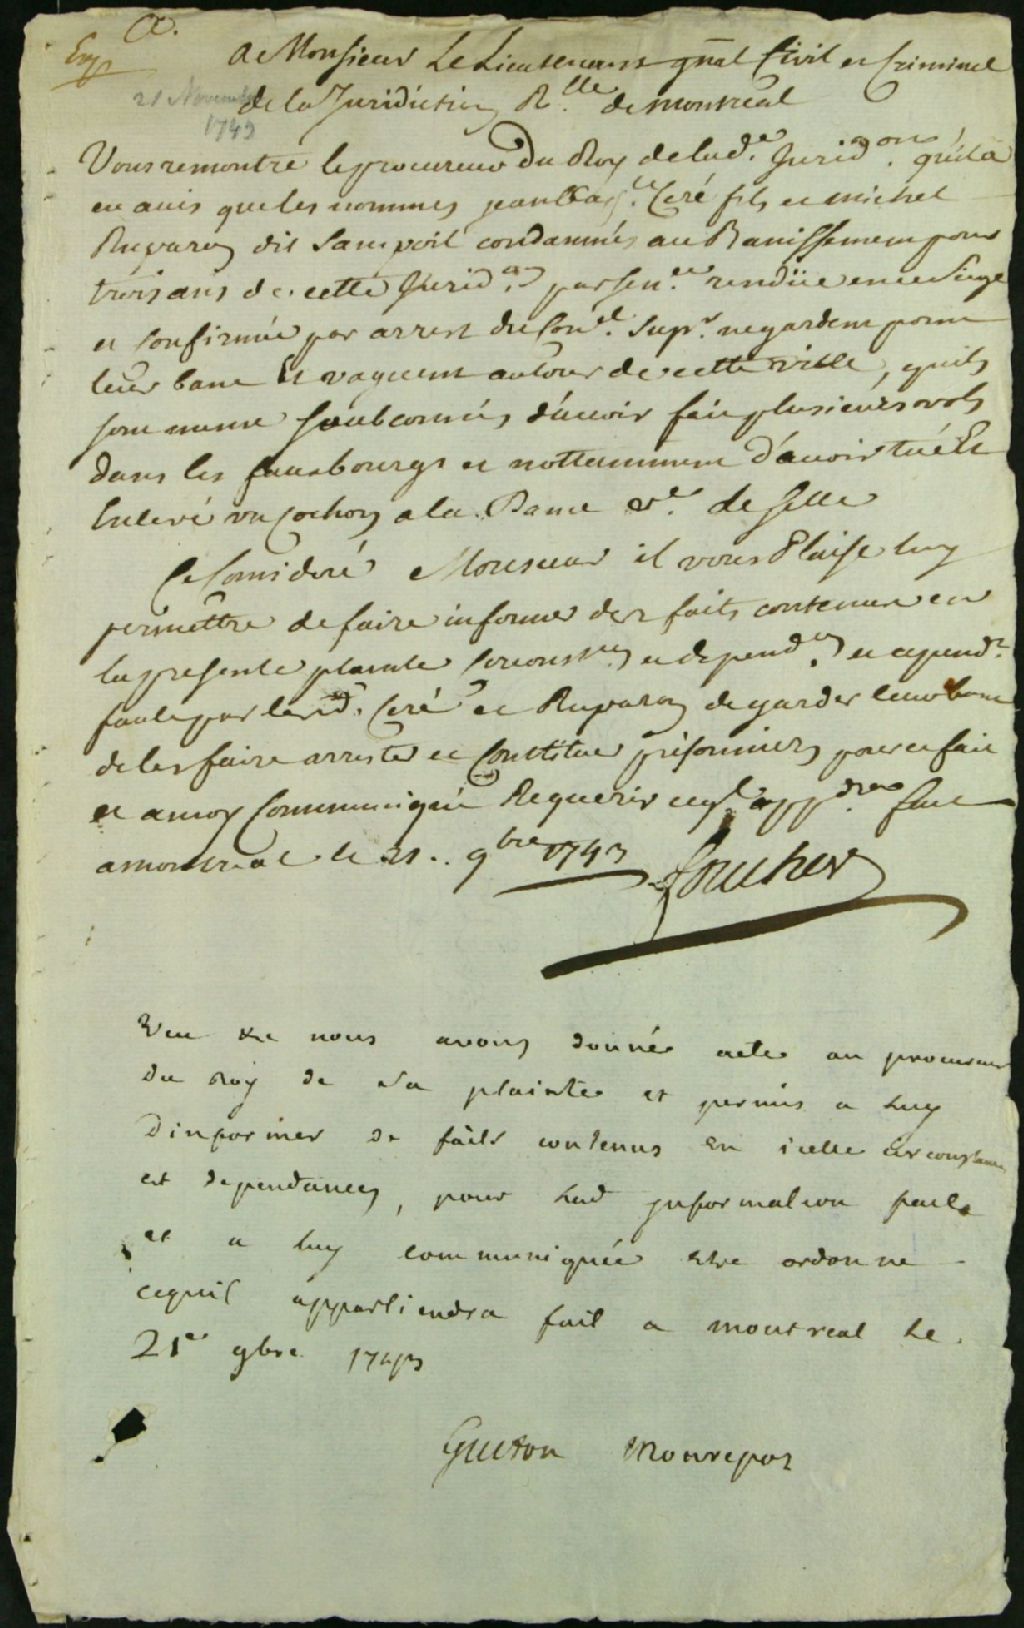 A Monsieur Le Lieutenant gnal Civil et Criminel
21 Novembre
de la Juridiction Rlle de montreal
1743
Vous remontre le procureur Du Roy de lad.e Jurid.on quil a
eu avis que les nommes jean Bap.te Ceré fils et michel
Ruparon dit Sanspoil condamnés au Banissement pour
trois ans de cette Jurid.on par sen.ce rendüe en ce Siege
et confirmée par arrest du Con.l Sup.r ne gardent point
leur banc Et vaguent autour de cette ville, quils
sont meme soubconnés d'avoir fait plusieurs vols
dans les fauxbourgs et nottamment d'avoir tué Et
Enlevé un cochon a la Dame v.e de selle
Ce Consideré Monsieur il vous Plaise luy
permettre de faire informer des faits contenus en
la presente plainte circonst.ces et depend.ces et cepend.t
faute par lesd. Ceré et Ruparon de garder leur banc
de les faire arrester et Constituer prisonniers pour ce fait
et a moy Communiqué Requerir ce q.l app.dra fait
a montreal le 21.. 9bre 1743 foucher
Veu &c nous avons donné acte au procureur
du Roy de sa plainte et permis a luy
d'informer de faits contenus en icelle circonstances
et dependances, pour lad information faite
et a luy communiquée estre ordonne
cequil appartiendra fait a montreal le
21e 9bre 1743
Guiton Monrepos